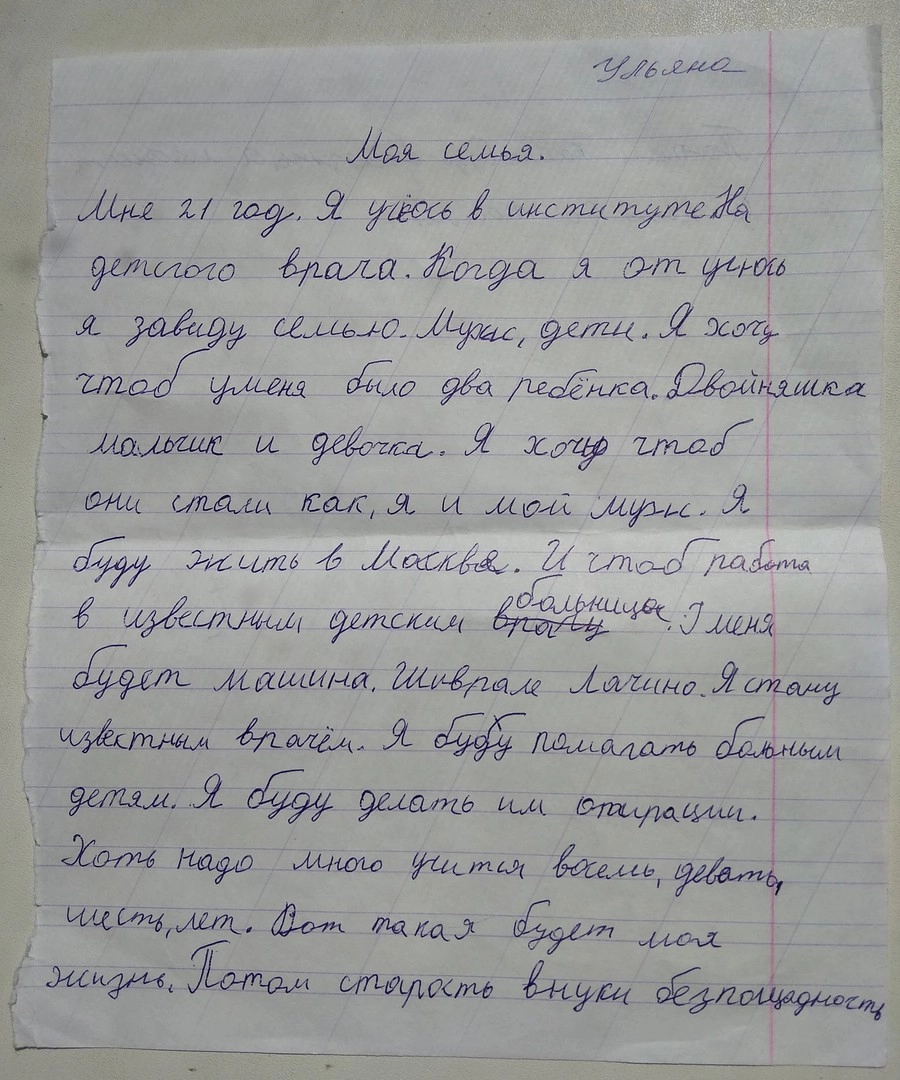 Ульяна
Моя семья.
Мне 21 год. Я учюсь в институте На
детского врача. Когда я от учюсь
я завиду семью. Муж, дети. Я хочу
чтоб уменя было два ребёнка. Двойняшка
мальчик и девочка. Я хочу чтоб
они стали как, я и мой муж. Я
буду жить в Москве. И чтоб работа
в известным детским больнице. У меня
будет машина. Шиврале Лачино. Я стану
известным врачём. Я буду помагать больным
детям. Я буду делать им опирации.
Хоть надо много учится восемь, девать,
шесть, лет. Вот такая будет моя
жизнь. Потом старость внуки безпощадность